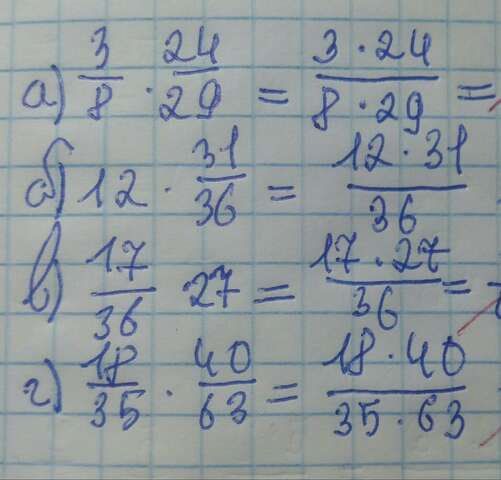 а) 3/8 · 24/29 = 3 · 24/8 · 29 =
б) 12 · 31/36 = 12 · 31/36
в) 17/36 · 27 = 17 · 27/36 =
г) 18/35 · 40/63 = 18 · 40/35 · 63